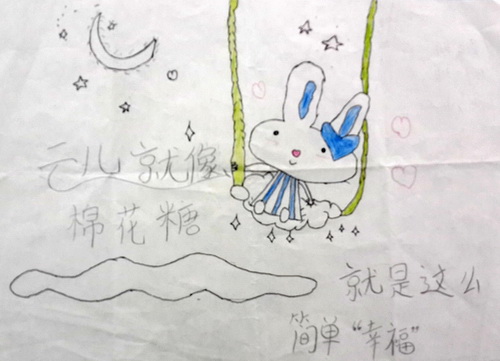 云儿就像
棉花糖
就是这么
简单“幸福”